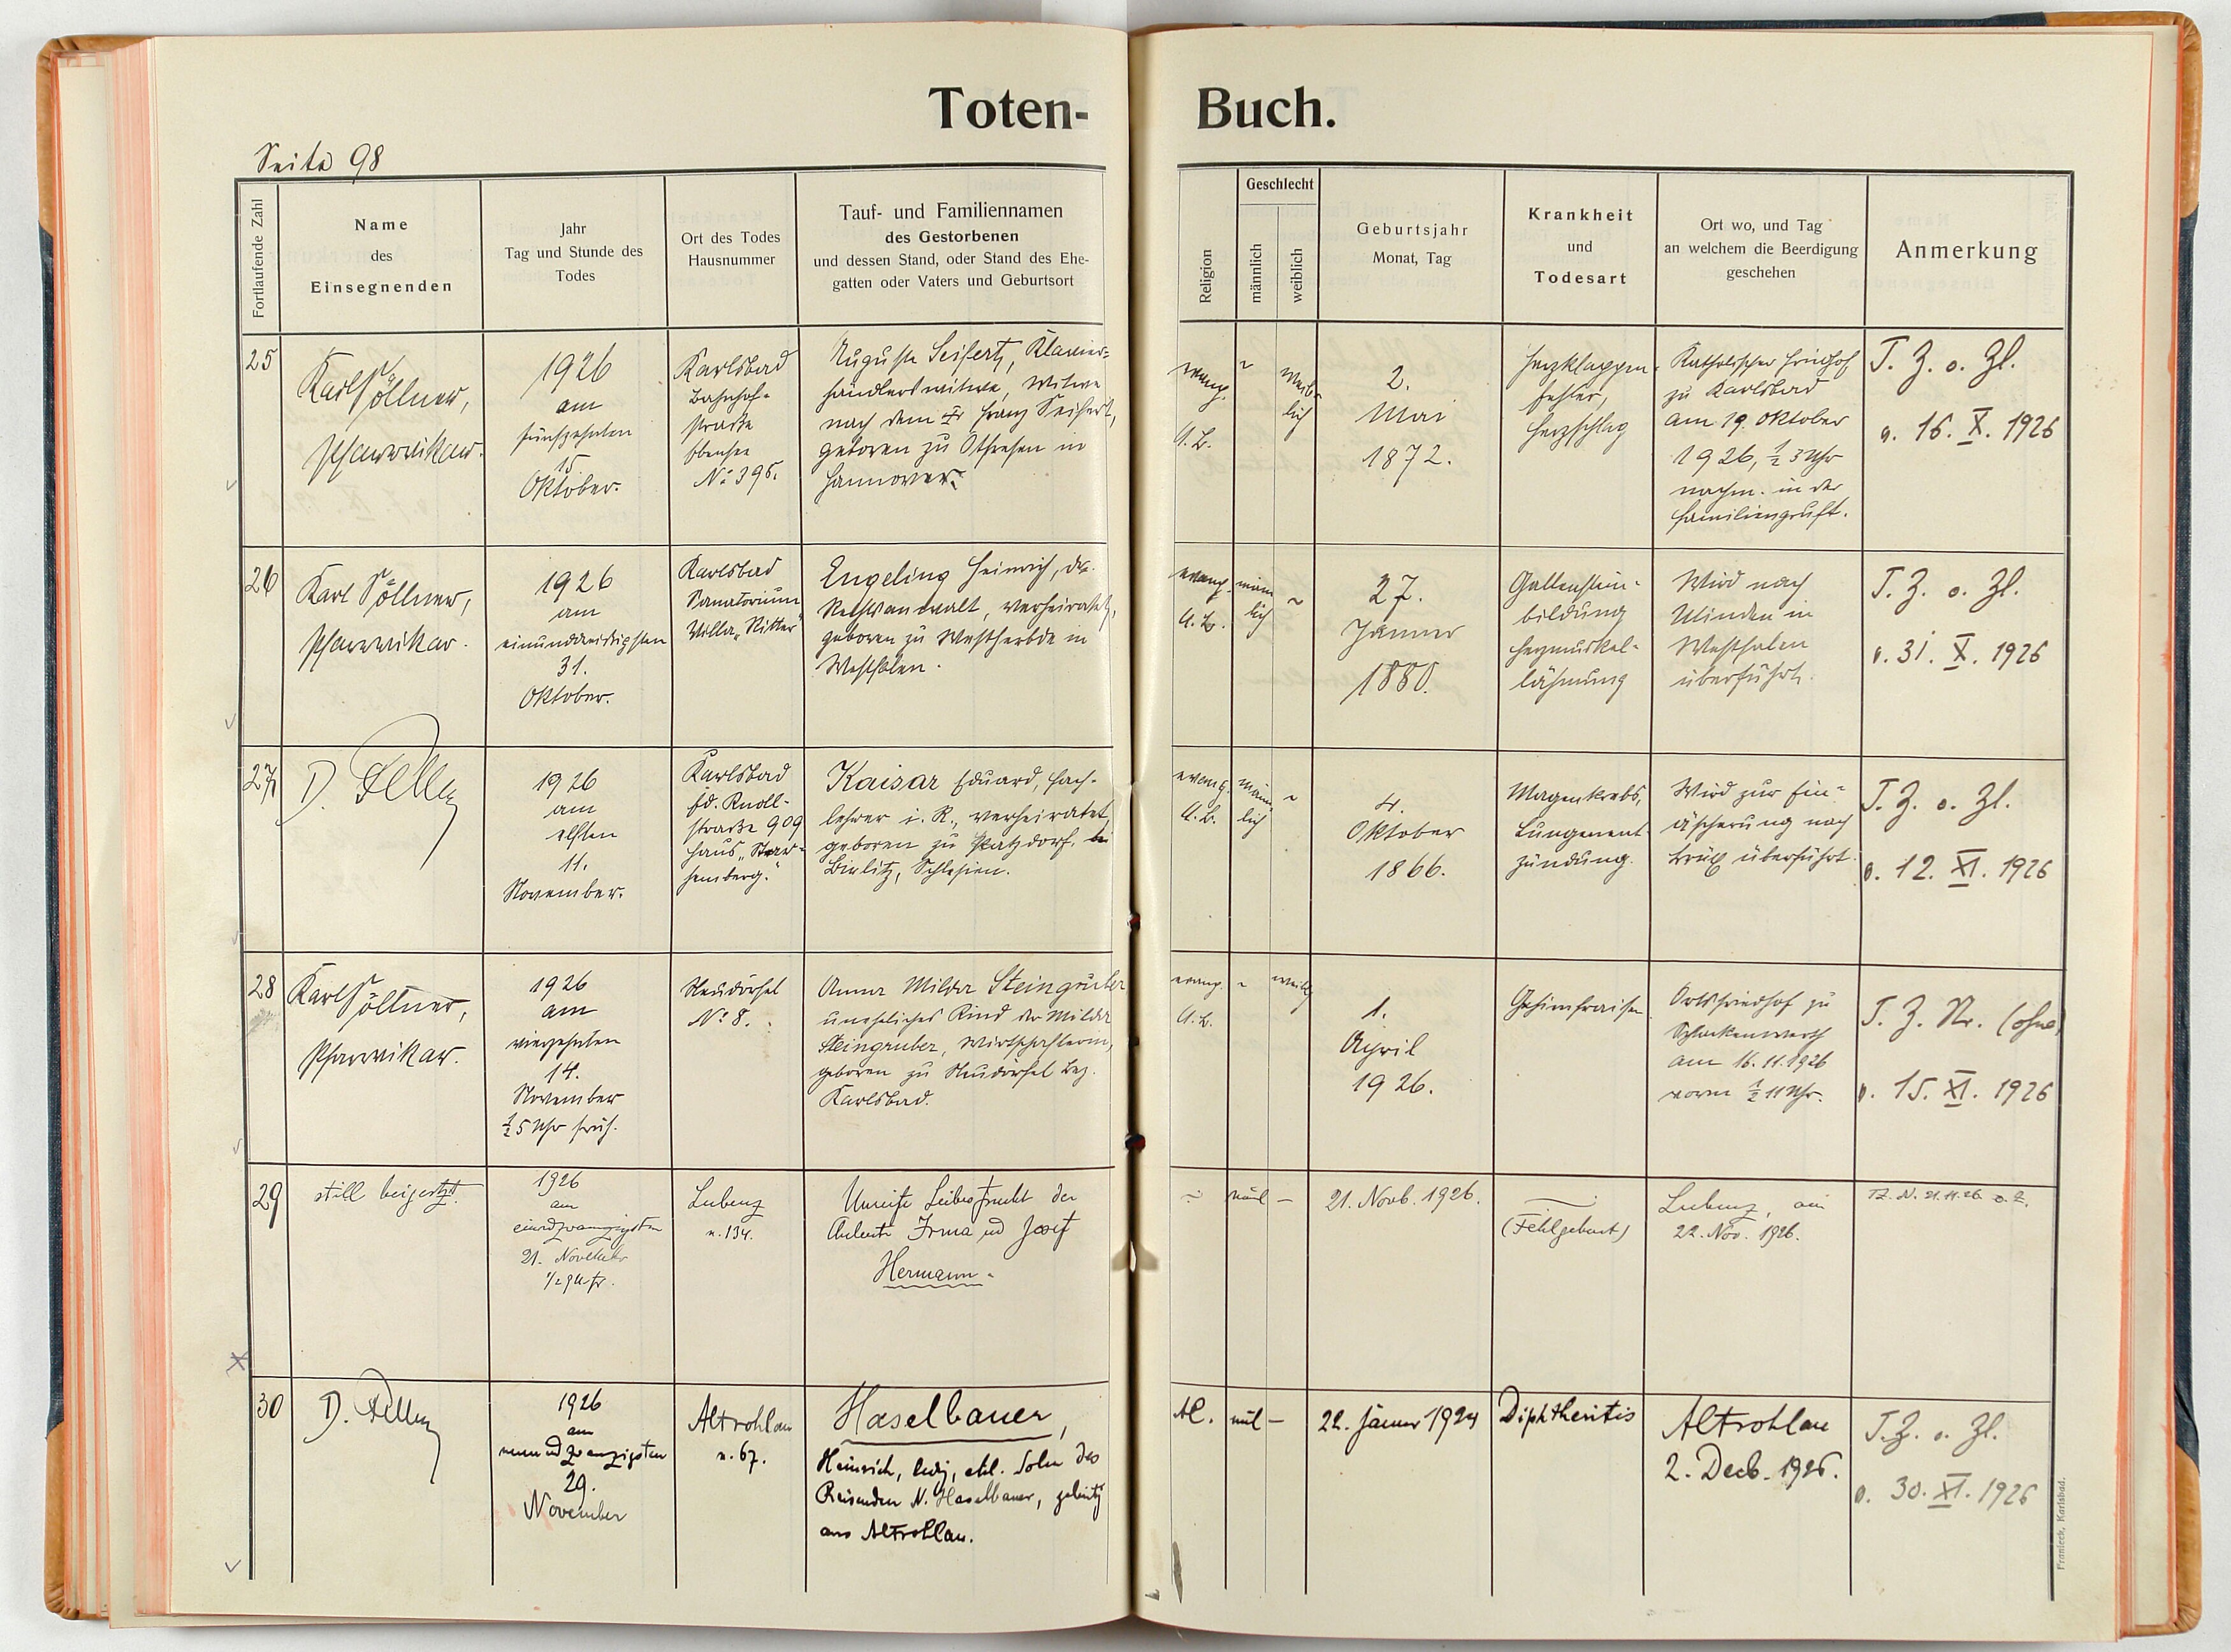 Toten-Buch.
Seite 98
Fortlaufende Zahl
Name
des
Einsegnenden
Jahr
Tag und Stunde des
Todes
Ort des Todes
Hausnummer
Tauf- und Familiennamen
des Gestorbenen
und dessen Stand, oder Stand des Ehe-
gatten oder Vaters und Geburtsort
Religion
Geschlecht
männlich
weiblich
Geburtsjahr
Monat, Tag
Krankheit
und
Todesart
Ort wo, und Tag
an welchem die Beerdigung
geschehen
Anmerkung
25
Karl Söllner,
Pfarrvikar.
1926
am
fünfzehnten
15.
Oktober.
Karlsbad
Bahnhof-
straße
Ebensee
No 395.
Auguste Seifert, Klavier-
händlerswitwe, Witwe
nach dem Franz Seifert,
geboren zu Othfresen in
Hannover.
evang.
A.B.
~
weib-
lich
2.
Mai
1872.
Herzklappen-
fehler,
Herzschlag
Katholischer Friedhof
zu Karlsbad
am 19. Oktober
1926, ½ 3 Uhr
nachm. in der
Familiengruft.
T. Z. o. Zl.
v. 16. X. 1926
26
Karl Söllner,
Pfarrvikar.
1926
am
einunddreißigsten
31.
Oktober.
Karlsbad
Sanatorium
Villa "Ritter"
Engeling Heinrich, Dr.
Rechtsanwalt, verheiratet,
geboren zu Westherbde in
Westfalen.
evang.
A.B.
männ
lich
~
27.
Jänner
1880.
Gallenstein-
bildung
Herzmuskel-
lähmung
Wird nach
Minden in
Westfalen
überführt.
T. Z. o. Zl.
v. 31. X. 1926
27
D.
1926
am
elften
11.
November.
Karlsbad
Ed. Knoll-
straße 909
Haus "Star-
hemberg."
Kaisar Eduard, Fach-
lehrer i. R., verheiratet,
geboren zu Batzdorf, bei
Bielitz, Schlesien.
evang.
A.B.
männ
lich
~
4.
Oktober
1866.
Magenkrebs,
Lungenent-
zündung.
Wird zur Ein-
äscherung nach
Brüx überführt.
T. Z. o. Zl.
v. 12. XI. 1926
28
Karl Söllner,
Pfarrvikar.
1926
am
vierzehnten
14.
November
½ 5 Uhr früh.
Neudörfel
No 8.
Anna Milda Steingruber
uneheliches Kind der Milda
Steingruber, Wirtschafterin,
geboren zu Neudörfel Bez.
Karlsbad.
evang.
A.B.
~
weibl.
1.
April
1926.
Gehirnfraisen
Ortsfriedhof zu
Schlackenwerth
am 16.11.1926
vorm ½ 11 Uhr.
T. Z. Nr. (ohne)
v. 15. XI. 1926
29
still beigesetzt.
1926
am
einundzwanzigsten
21. November
½ 9 U fr.
Lubenz
n. 134.
Unreife Leibesfrucht der
Eheleute Irma und Josef
Hermann.
~
ml
–
21. Novb. 1926.
(Fehlgeburt)
Lubenz, am
22. Nov. 1926.
TZ. N. 21.11.26 o. Z.
30
D.
1926
am
neunundzwanzigsten
29.
November
Altrohlau
n. 67.
Haselbauer,
Heinrich, ledig, ehl. Sohn des
Reisenden N. Haselbauer, gebürtig
aus Altrohlau.
ml
–
22. Jänner 1924
Diphtheritis
Altrohlau
2. Decb. 1926.
T. Z. o. Zl.
v. 30. XI. 1926
Franieck, Karlsbad.